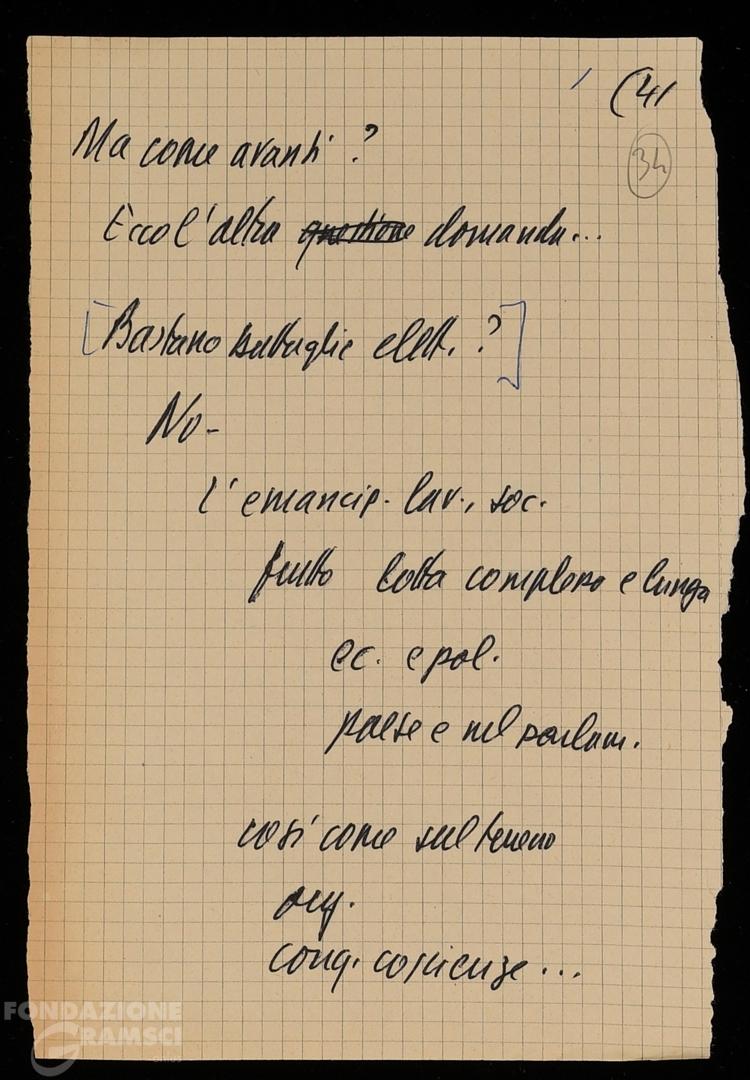 (41
34
Ma come avanti?
Ecco l'altra questione domanda...
[Bastano battaglie elett.?]
No-
l'emancip. lav., soc.
frutto lotta complessa e lunga
ec. e pol.
paese e nel parlam.
così come sul terreno
org.
conq. coscienze...
FONDAZIONE
GRAMSCI